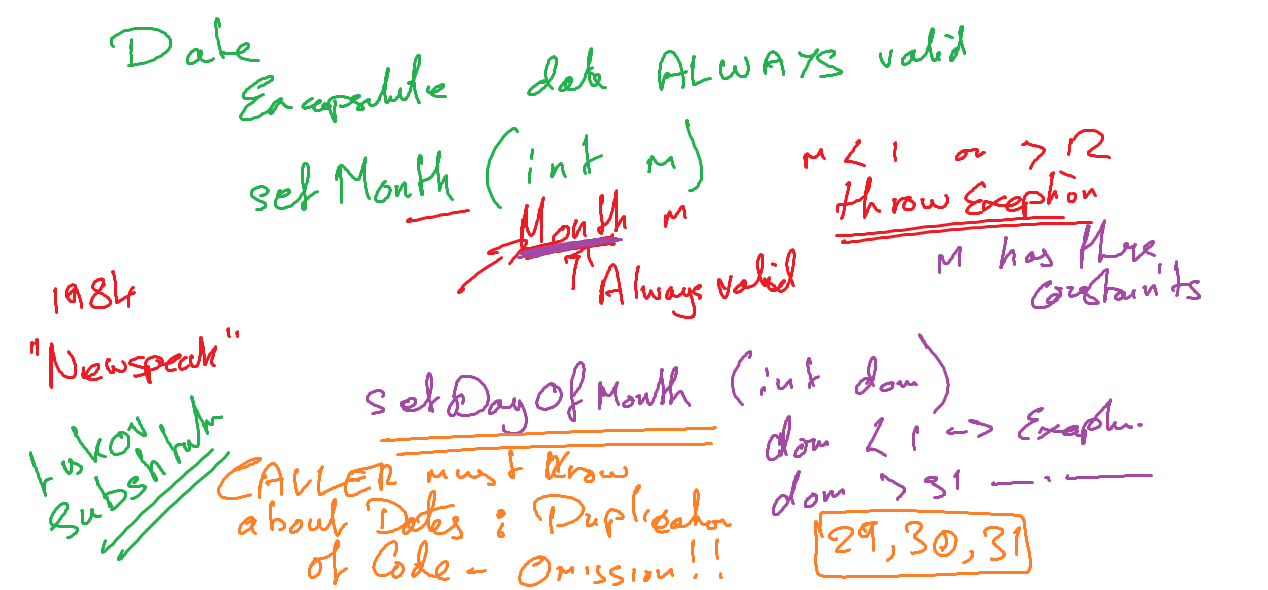 Date
Encapsulate date ALWAYS valid
setMonth (int m)
m < 1 or > 12
throw Exception
Month m
Always valid
m has these
constraints
1984
"Newspeak"
setDayOfMonth (int dom)
dom < 1 -> Exception
dom > 31 —.—
Liskov
Substitution
CALLER must know
about Dates : Duplication
of Code - Omission!!
29, 30, 31